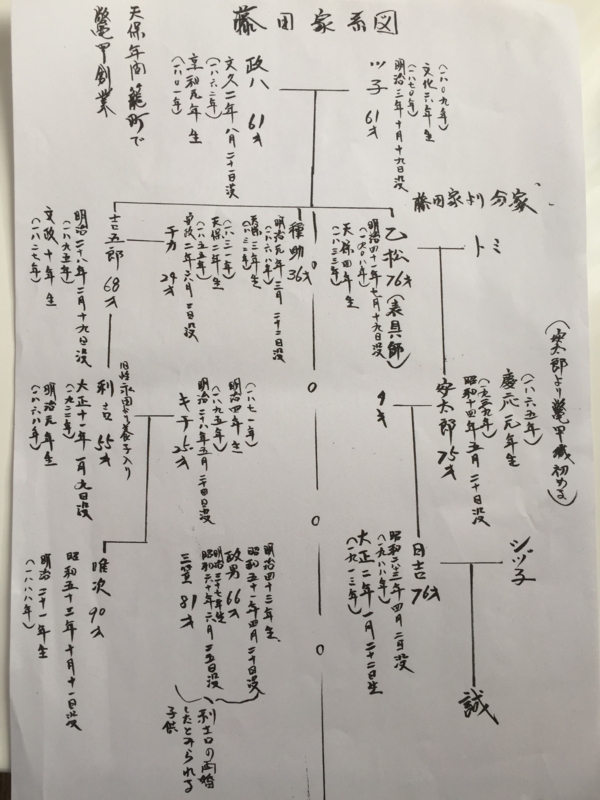 藤田家系図
文化六年生
(一八〇九年)
明治三年十月十九日没
(一八七〇年)
ツ子 61才
政八 61才
文久二年八月二十一日没
(一八六二年)
享和元年生
(一八〇一年)
天保年間籠町で
鼈甲創業
藤田家より分家
トミ
乙松 76才(表具師)
明治四十一年七月十九日没
(一九〇八年)
天保四年生
(一八三三年)
種助 36才
明治元年三月二十二日没
(一八六八年)
天保三年生
(一八三二年)
チカ 24才
安政二年六月二日没
(一八五五年)
天保二年生
(一八三一年)
吉五郎 68才
明治二十八年二月十九日没
(一八九五年)
文政十年生
(一八二七年)
(安太郎より鼈甲職初める)
慶応元年生
(一八六五年)
安太郎 75才
昭和十四年五月二十日没
(一九三九年)
タキ
キチ 25才
明治四年生
(一八七一年)
明治二十八年五月二十四日没
(一八九五年)
旧姓永田より養子入り
利吉 55才
大正十一年一月九日没
(一九二二年)
明治元年生
(一八六八年)
シヅ子
日吉 76才
昭和六三年四月二日没
(一九八八年)
大正二年一月二十二日生
(一九一三年)
誠
明治四十三年生
昭和五十一年四月二十日没
政男 66才
明治三十七年生
昭和六十年六月二五日没
三笠 81才
利吉の再婚
したとみられる
子供
唯次 90才
昭和五十三年十月十一日没
明治二十一年生
(一八八八年)